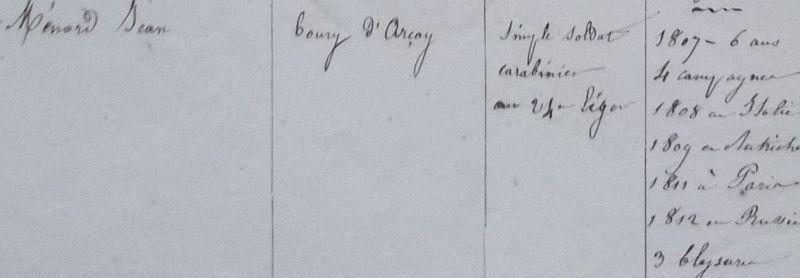 Ménard Jean
bourg d'Arçay
simple soldat
carabinier
au 24e léger
1807 - 6 ans
4 campagnes
1808 en Italie
1809 en Autriche
1811 à Paris
1812 en Russie
3 blessures